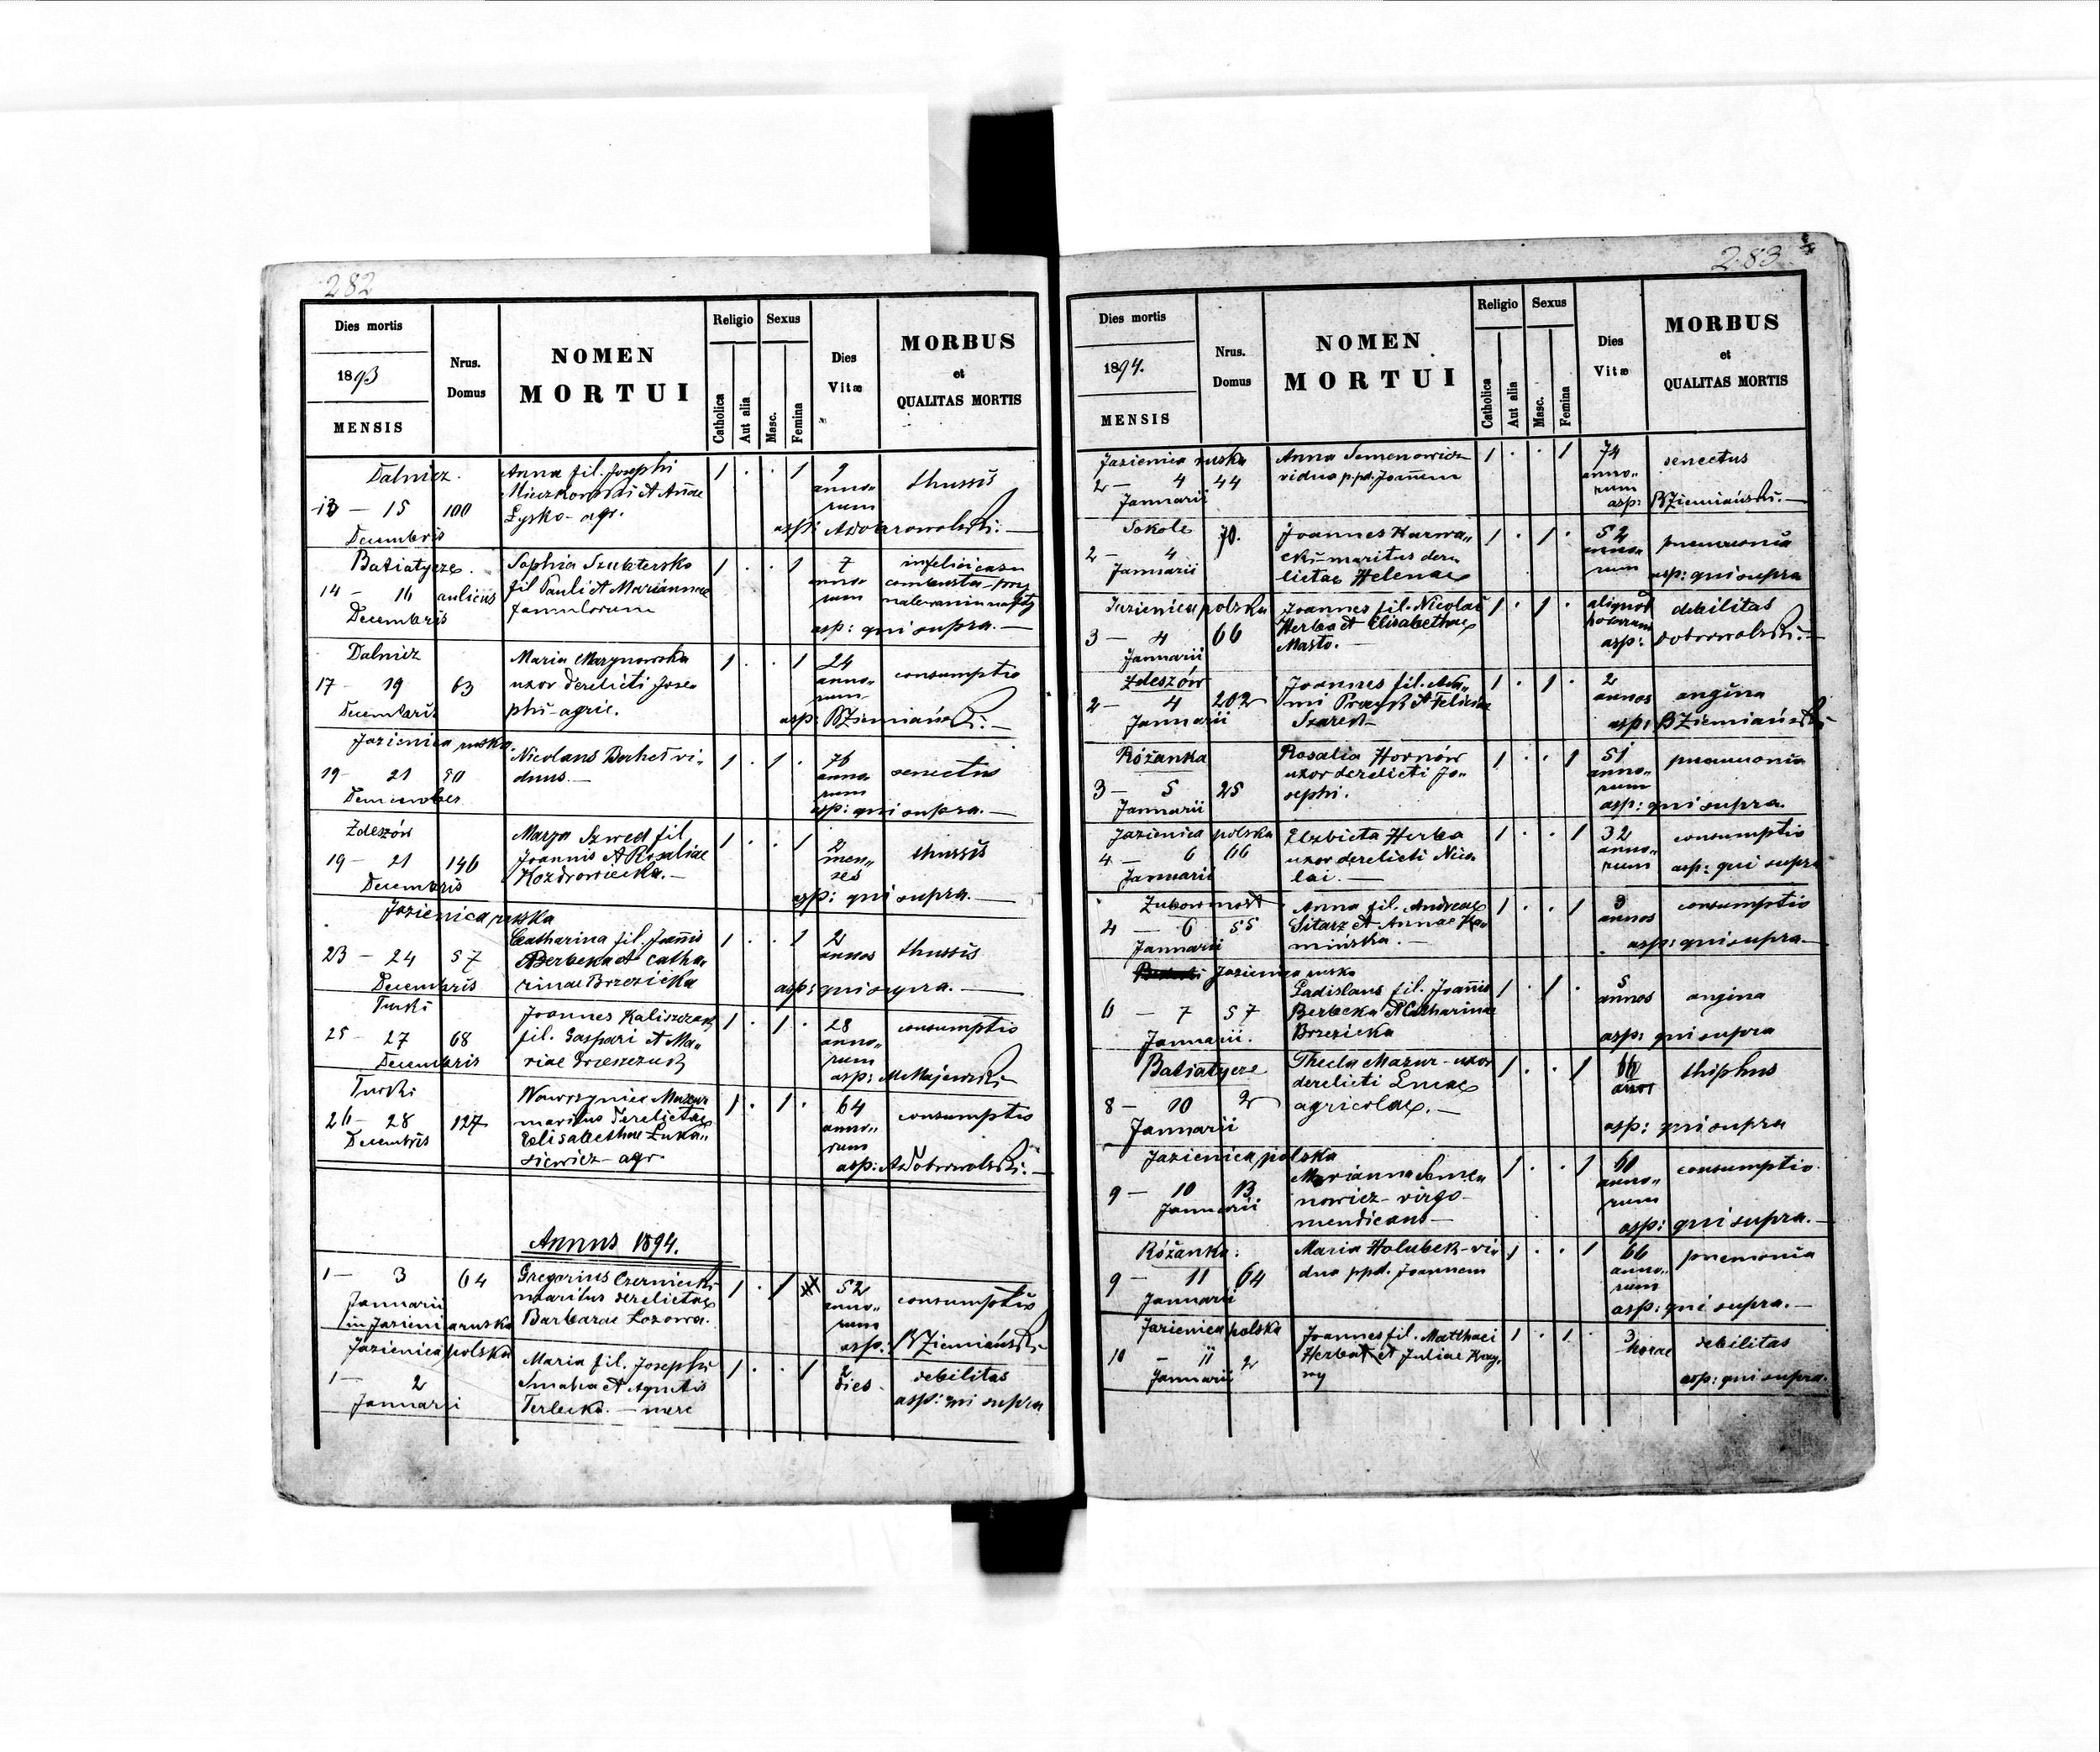 282
Dies mortis
1893
MENSIS
Nrus.
Domus
NOMEN
MORTUI
Religio
Catholica
Aut alia
Sexus
Masc.
Femina
Dies
Vitæ
MORBUS
et
QUALITAS MORTIS
Dalnicz.
13 — 15 100
Decembris
Anna fil. Josephi
Mieczkowski et Annae
Lysko - agr.
1 . . 1
9
anno„
rum
thussis
asp: ADobrowolski. —
Batiatycze.
14 — 16 aulicus
Decembris
Sophia Szubtersko
fil Pauli et Mariannae
famulorum
1 . . 1
7
anno„
rum
infelici casu
combusta
asp: qui supra. —
Dalnicz
17 — 19 63
Decembris
Maria Mazynowska
uxor derelicti Jose„
phi - agric.
1 . . 1
24
anno„
rum
consumptio
asp: BZiemiański. —
Jazienica ruska.
19 — 21 90
Nicolaus Bachet vi„
duus. —
1 . 1 .
76
anno
rum
senectus
asp: qui supra. —
Zdeszów
19 — 21 146
Decembris
Marya Szwed fil
Joannis et Rosaliae
Kozdrowiecka. —
1 . . 1
2
men„
ses
thussis
asp: qui supra. —
Jazienica ruska
23 — 24 57
Decembris
Catharina fil. Joannis
Berbeka et Catha„
rinae Brzezicka
1 . . 1
2
annos
thussis
asp: qui supra. —
Turki
25 — 27 68
Decembris
Joannes Kaliszczak
fil. Gaspari et Ma„
riae
1 . 1 .
28
anno„
rum
consumptio
asp: MMajewski —
Turki
26 — 28 127
Decembris
Wawrzyniec Mazur
maritus derelictae
Elisabethae Luka„
siewicz - agr.
1 . 1 .
64
anno„
rum
consumptio
asp: ADobrowolski. —
Annus 1894.
1 — 3 64
Januarii
in Jazienica ruska
Gregorius Czerniecki
maritus derelictae
Barbarae Lozowa.
1 . 1
52
anno„
rum
consumptio
asp: BZiemiański
Jazienica polska
1 — 2
Januarii
Maria fil. Josephi
Smaha et Agnetis
Terlecka. — merc
1 . . 1
2
dies
debilitas
asp: qui supra
283
Dies mortis
1894.
MENSIS
Nrus.
Domus
NOMEN
MORTUI
Religio
Catholica
Aut alia
Sexus
Masc.
Femina
Dies
Vitæ
MORBUS
et
QUALITAS MORTIS
Jazienica ruska
2 — 4 44
Januarii
Anna Semenowicz
vidua p.pd. Joannem
1 . . 1
74
anno„
rum
senectus
asp: BZiemiański. —
Sokole
2 — 4 70.
Januarii
Joannes Harwa„
cki - maritus dere
lictae Helenae
1 . 1 .
52
anno„
rum
pneumonia
asp: qui supra
Jazienica polska
3 — 4 66
Januarii
Joannes fil. Nicolai
Herba et Elisabethae
Masto.
1 . 1 .
aliquot
horarum
debilitas
asp: Dobrowolski. —
Zdeszów
2 — 4 202
Januarii
Joannes fil. Ada„
mi et Feliciae
Szarest
1 . 1 .
2
annos
angina
asp: BZiemiański
Różanka
3 — 5 25
Januarii
Rosalia Hornów
uxor derelicti Jo„
sephi.
1 . . 1
51
anno„
rum
pneumonia
asp: qui supra.
Jazienica polska
4 — 6 66
Januarii
Elzbieta Herba
uxor derelicti Nico„
lai. —
1 . . 1
32
anno„
rum
consumptio
asp: qui supra
Zubowmost
4 — 6 55
Januarii
Anna fil. Andreae
Sitarz et Annae Ka„
mińska. —
1 . . 1
3
annos
consumptio
asp: qui supra —
Jazienica ruska
6 — 7 57
Januarii.
Ladislaus fil. Joannis
Berbeka et Catharinae
Brzezicka
1 . 1 .
5
annos
angina
asp: qui supra
Batiatycze
8 — 10 2
Januarii
Thecla Mazur - uxor
derelicti Lucae
agricolae. —
1 . . 1
66
annos
thiphus
asp: qui supra
Jazienica polska
9 — 10 13.
Januarii
Marianna Seme„
nowicz - virgo
mendicans —
1 . . 1
60
anno„
rum
consumptio.
asp: qui supra. —
Różanka.
9 — 11 64
Januarii
Maria Holubek - vi„
dua ppd. Joannem
1 . . 1
66
anno„
rum
pnemonia
asp: qui supra. —
Jazienica polska
10 — 11 2
Januarii
Joannes fil. Matthaei
Herba et Juliae
1 . 1 .
3
horae
debilitas
asp: qui supra.